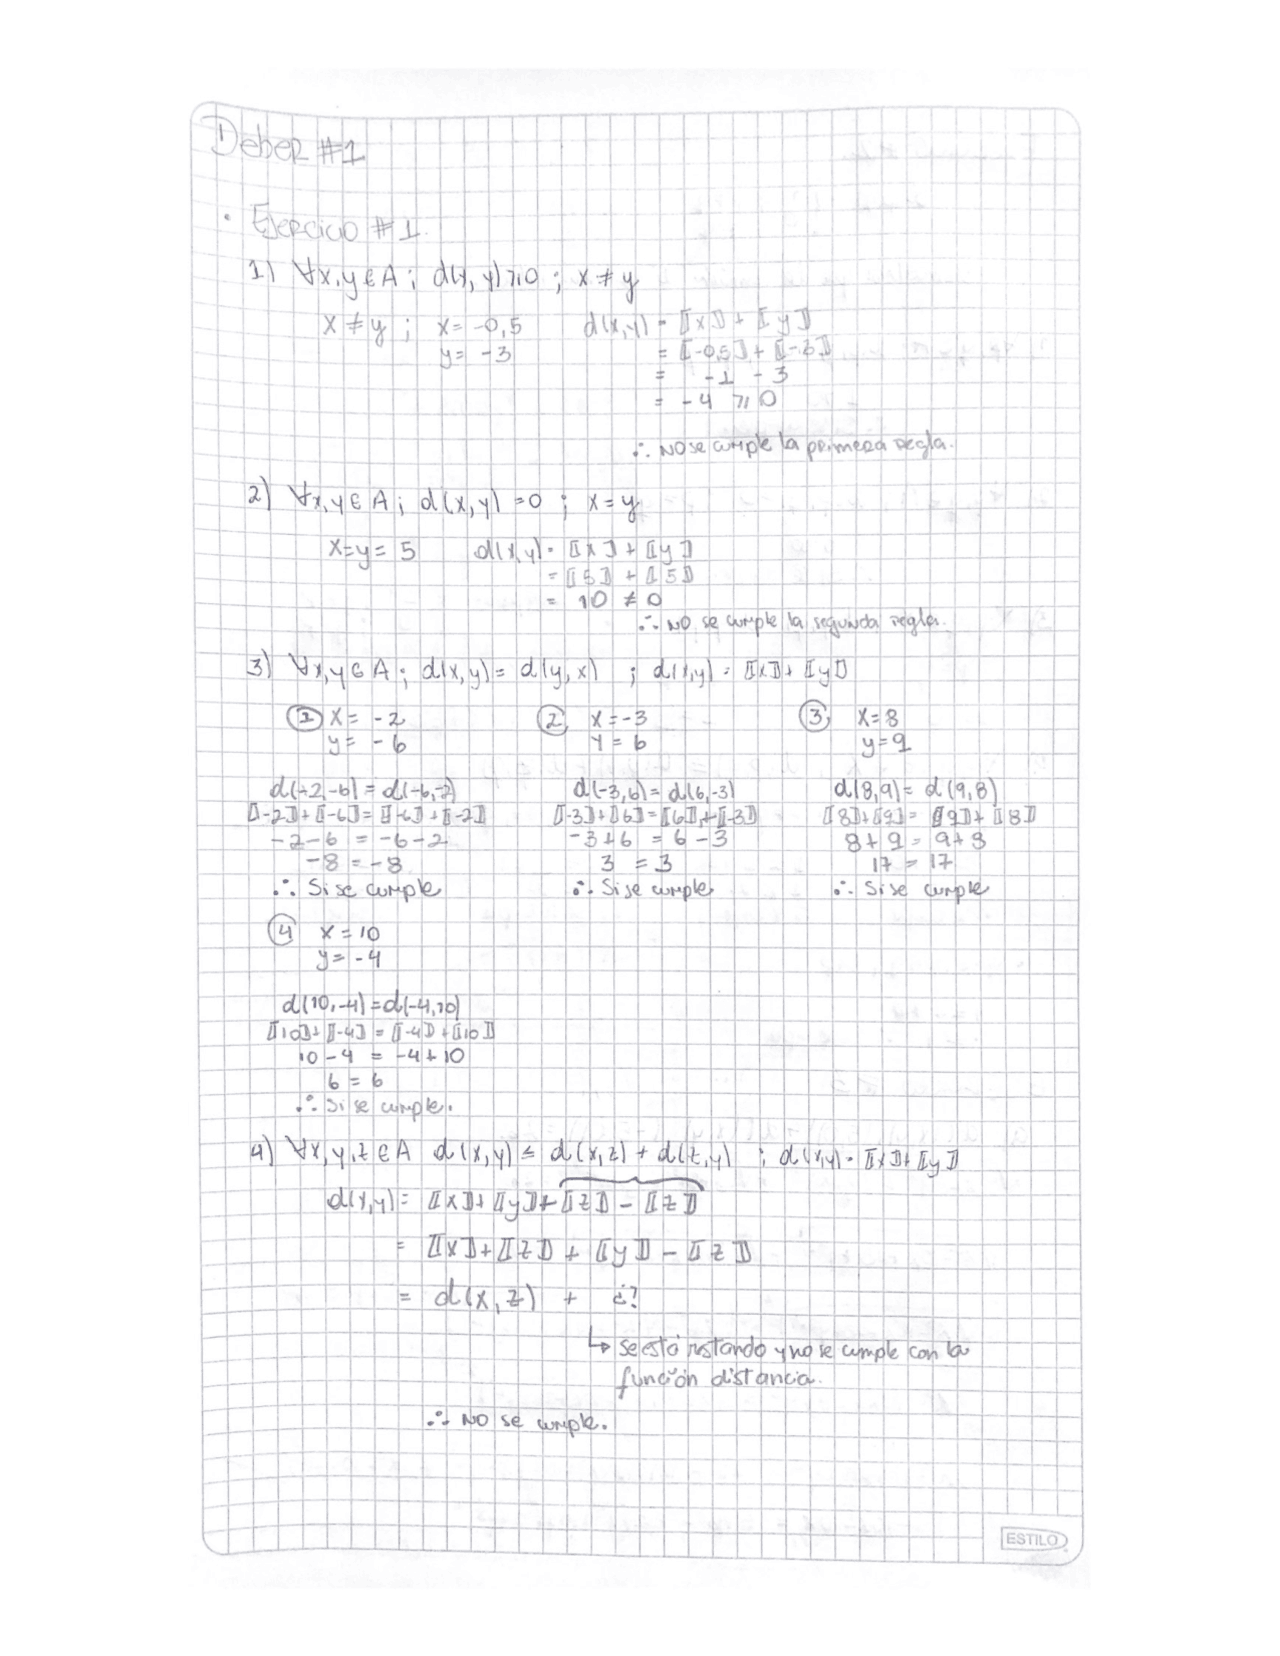 Deber #1
• Ejercicio #1.
1) ∀x,y∈A ; d(x,y)⩾0 ; x≠y
x≠y ; x= -0,5 d(x,y) = ⟦x⟧+⟦y⟧
y= -3 = ⟦-0,5⟧+⟦-3⟧
= -1 -3
= -4 ⩾ 0
∴ NO se cumple la primera regla.
2) ∀x,y∈A ; d(x,y) =0 ; x=y
x=y= 5 d(x,y)= ⟦x⟧+⟦y⟧
= ⟦5⟧ + ⟦5⟧
= 10 ≠ 0
∴ NO se cumple la segunda regla.
3) ∀x,y∈A ; d(x,y)= d(y,x) ; d(x,y) = ⟦x⟧+⟦y⟧
① x= -2 ② x=-3 ③ x=8
y= -6 y=6 y=9
d(-2,-6)=d(-6,-2) d(-3,6)=d(6,-3) d(8,9)= d(9,8)
⟦-2⟧+⟦-6⟧=⟦-6⟧+⟦-2⟧ ⟦-3⟧+⟦6⟧=⟦6⟧+⟦-3⟧ ⟦8⟧+⟦9⟧= ⟦9⟧+⟦8⟧
-2-6 = -6-2 -3+6 = 6-3 8+9 = 9+8
-8 = -8 3 = 3 17 = 17
∴ Si se cumple ∴ Si se cumple ∴ Si se cumple
④ x=10
y= -4
d(10,-4)=d(-4,10)
⟦10⟧+⟦-4⟧ = ⟦-4⟧+⟦10⟧
10-4 = -4+10
6 = 6
∴ Si se cumple.
4) ∀x,y,z∈A d(x,y) ≤ d(x,z) + d(z,y) ; d(x,y)= ⟦x⟧+⟦y⟧
d(x,y)= ⟦x⟧+⟦y⟧+⟦z⟧-⟦z⟧
= ⟦x⟧+⟦z⟧ + ⟦y⟧ - ⟦z⟧
= d(x,z) + ¿?
↳ se está restando y no se cumple con la
función distancia.
∴ NO se cumple.
ESTILO